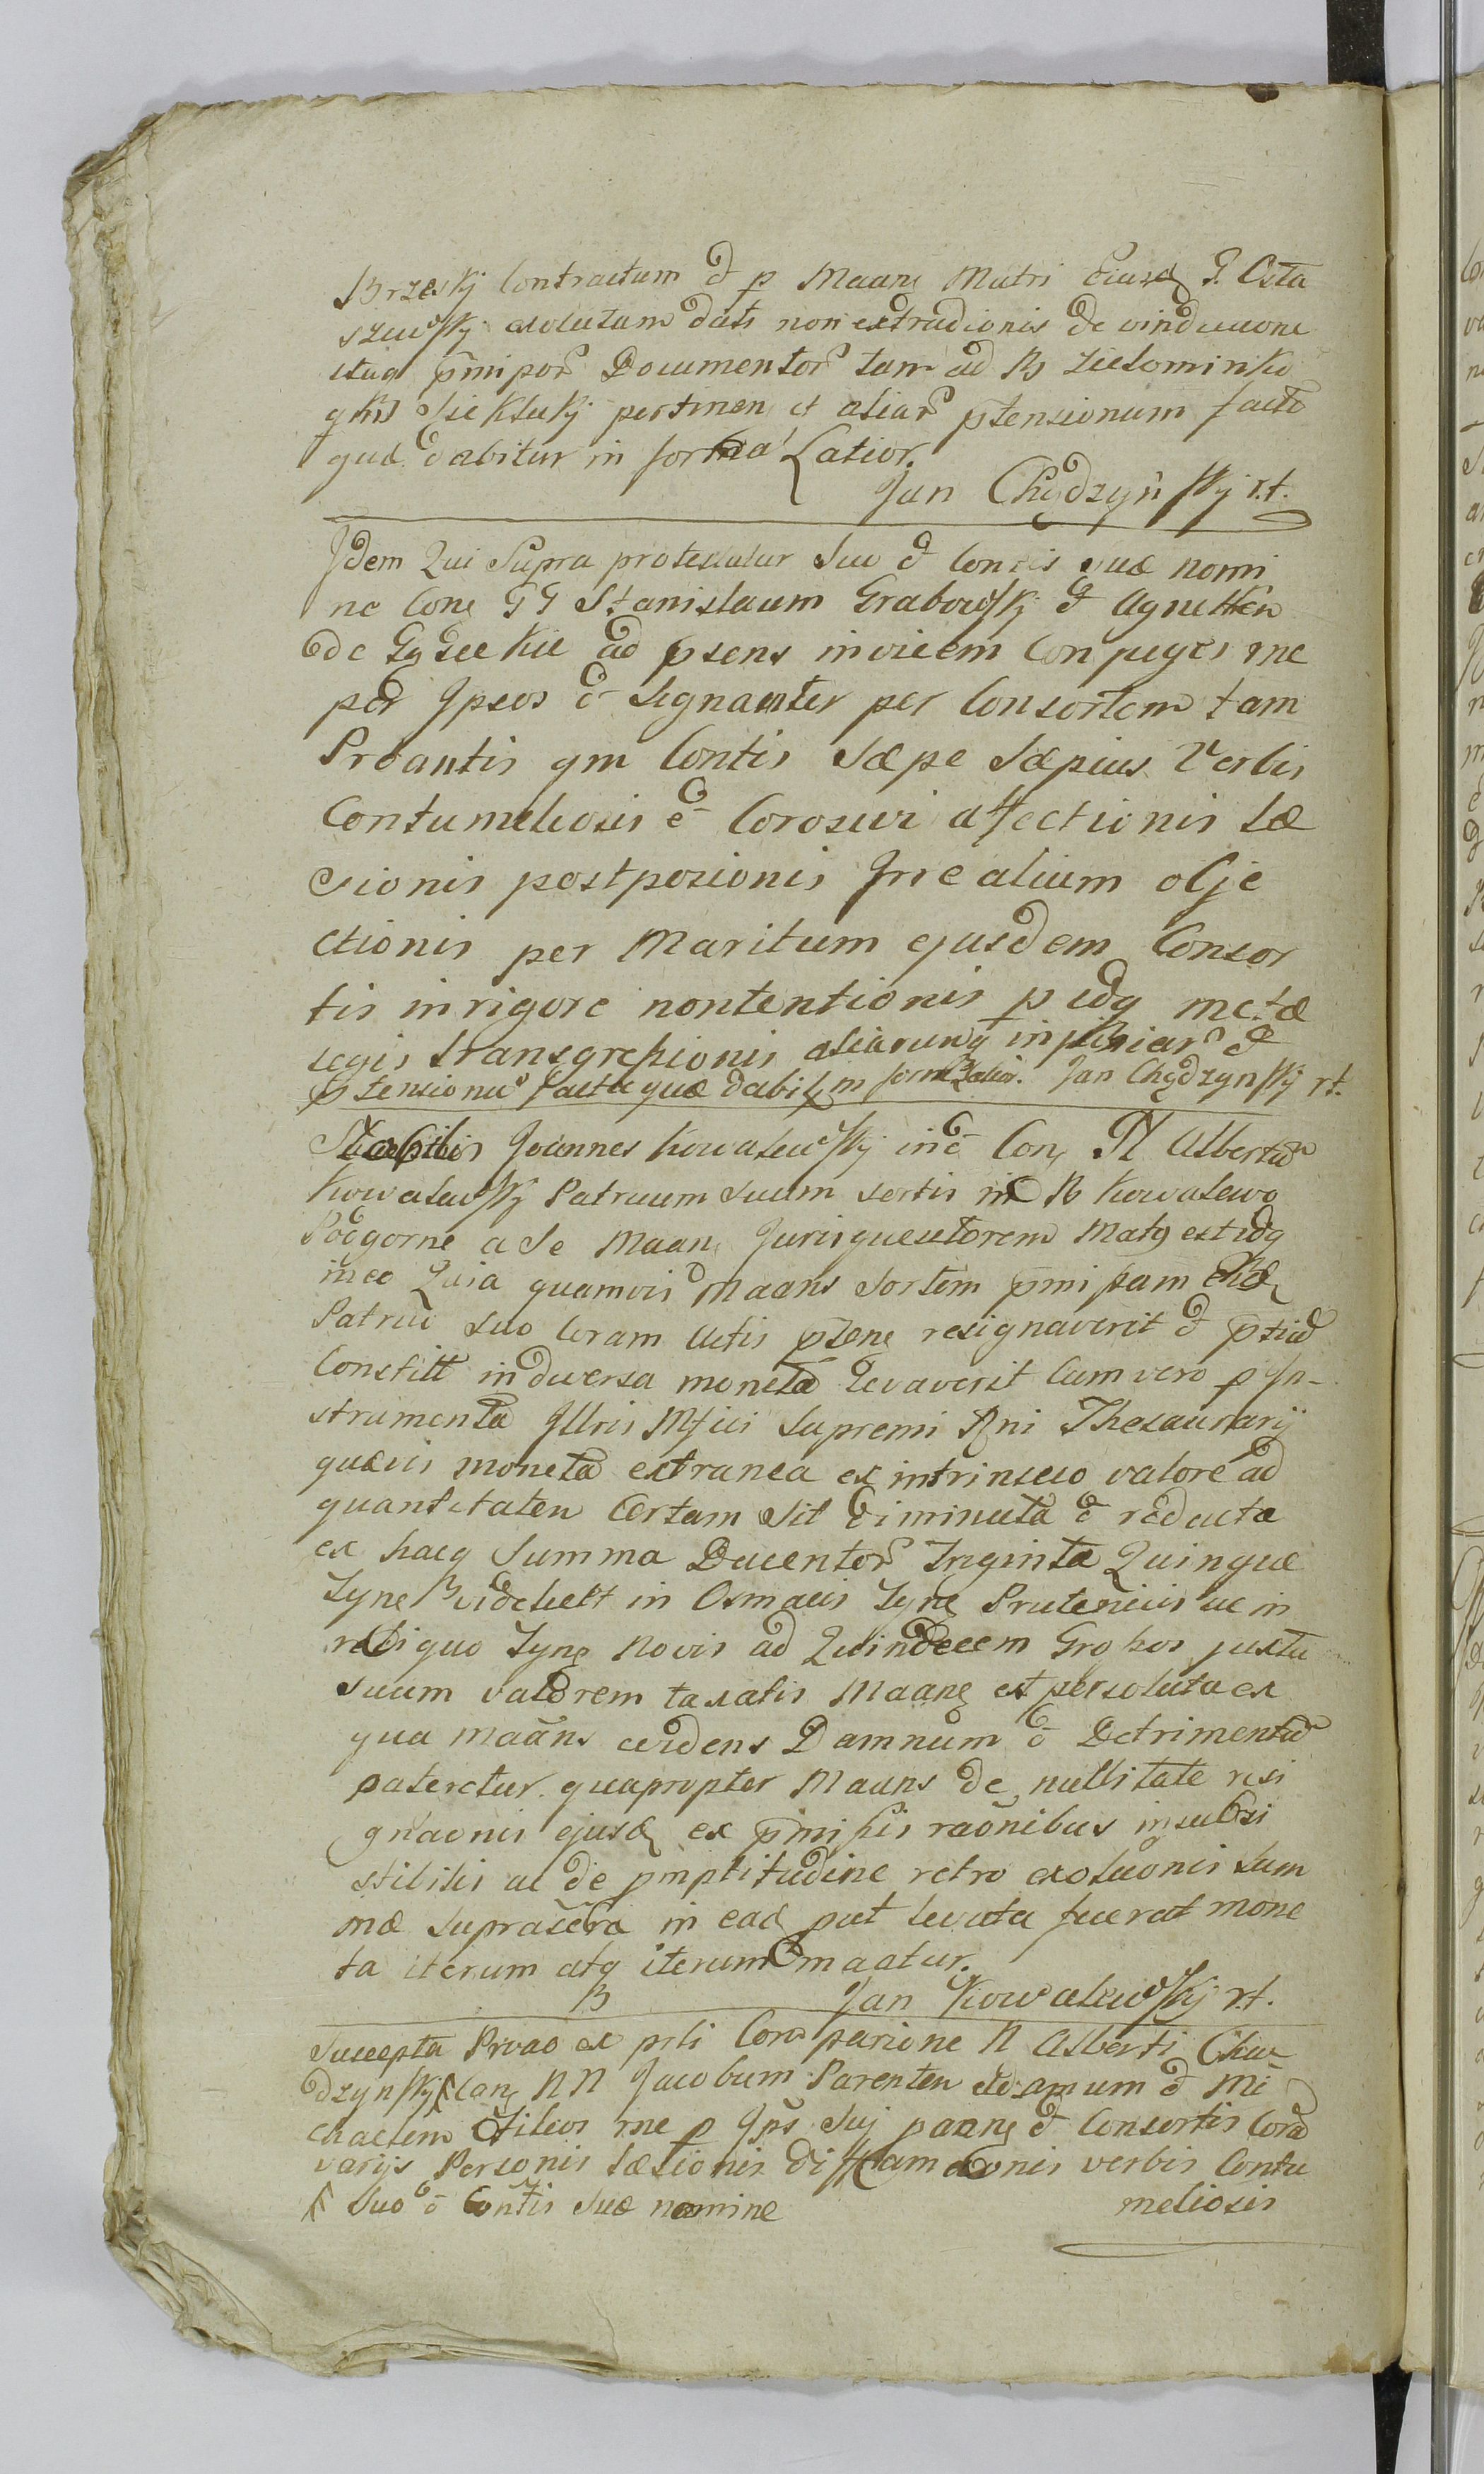 Brzeskj Contractum & p Maanq Matri Ejusdq G. Osta
szewskj solutam dati non extradionis de vindicaone
itaq p̄mi por Documentor tam ad B Zielominko
qkis Siekluki pertinen et aliar p̄tensionum facto
qua dabitur in forma Latior.
Jan Chądzyńskj r.t.
Jdem Qui Supra protestatur Suo & Contis suæ nomi
ne Conq GG Stanislaum Grabowskj & Agnetten
de Gąseckie ad p̄sens invicem Conjuges rne
per Jpsos & Signanter per Consortem tam
Proantis qm Contis Sæpe Sæpius Verbis
Contumeliosis & Corosivi affectionis Læ
sionis postposionis Jrrealium obje
ctionis per Maritum ejusdem Consor
tis in rigore nontentionis p idq metæ
legis transgressionis aliarumq injuriar &
p̄tensionu facta quæ dabit in forma Latior. Jan Chądzynskj r.t.
Joannes Kowalewskj in & Conq N Albertu
Kowalewskj Patruum suum sortis in B Kowalewo
Podgorne a Se Maanq Jurisquesitorem Matq est idq
in eo Quia quamvis Maans Sortem p̄missam
Patruo Suo Coram Actis p̄senq resignaverit & p̄tiu
Constitt in diversa moneta levaverit Cum vero p Jn-
strumenta Jllris Mfici Supremi Rni Thesaurarij
quævis moneta extranea ex intrinseco valore ad
quantitaten Certam Sit diminuta & reducta
ex hacq Summa Ducentor Triginta Quinque
Tynf videlicet in Osmacis Tynq Prutenicis ac in
reliquo Tynq Novis ad Quindecem Grossos juxta
suum valorem taxatis Maanq est persoluta ex
qua maans evidens Damnum & Detrimentu
pateretur quapropter Maans de nullitate resi
gnaonis ejusdq ex p̄missis raonibus insubsi
stibilis ac de p̄mptitudine retro exoluonis Sum
mæ Suprascra in eadq put levata fuerat mone
ta iterum atq iterum maatur.
Jan Kowalewskj r.t.
Suscepta Proao ex prli Comparione N Alberti Chą-
dzynskj Canq NN Jacobum Parenten Adamum & Mi
chaelem Filios rne p Jps Sui paanq & Consortis Cora
varijs Personis læsionis diffamaonis verbis Contu
Suo & Contis Suæ nomine meliosis